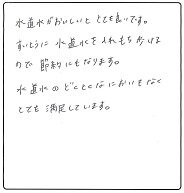 水道水がおいしいと とても良いです。
すいとうに 水道水を入れもち歩ける
ので 節約にもなります。
水道水のどくとくなにおいもなく
とても 満足しています。